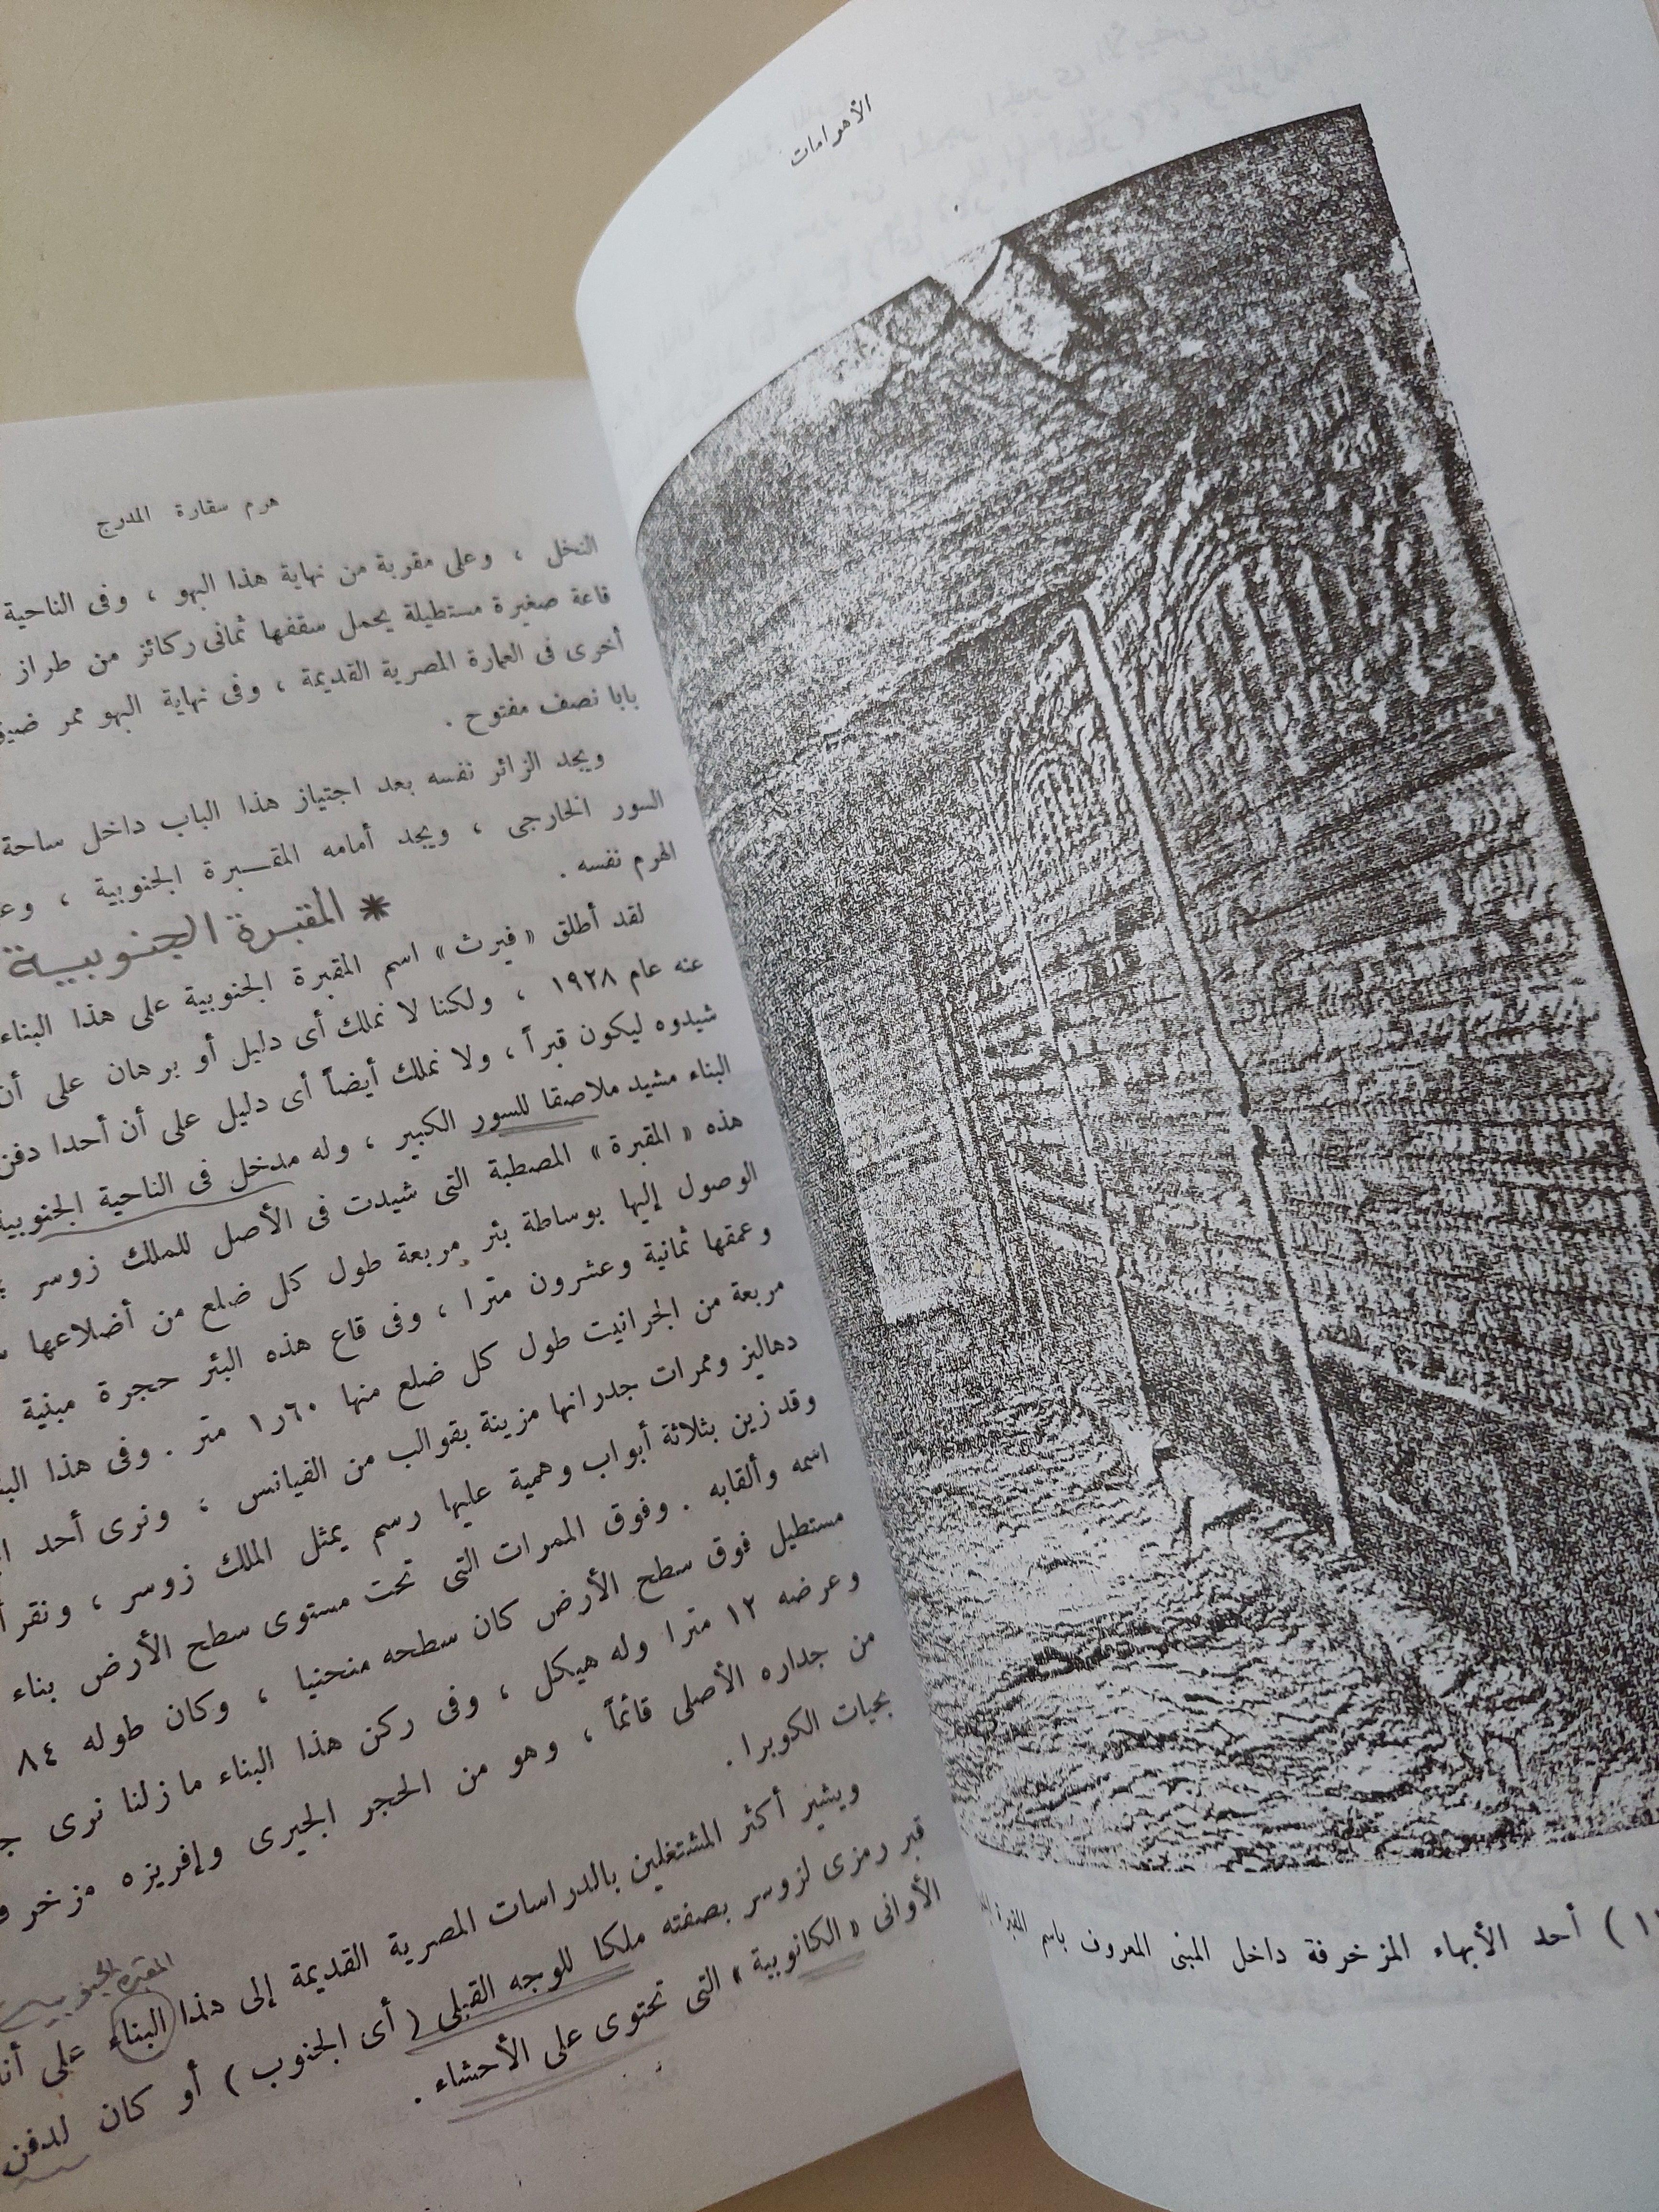 الأهرامات
١) أحد الأبهاء المزخرفة داخل المبنى المعروف باسم المقبرة
هرم سقارة المدرج
النخل ، وعلى مقربة من نهاية هذا البهو ، وفى الناحية
قاعة صغيرة مستطيلة يحمل سقفها ثمانى ركائز من طراز
أخرى فى العمارة المصرية القديمة ، وفى نهاية البهو ممر ضيق
بابا نصف مفتوح .
ويجد الزائر نفسه بعد اجتياز هذا الباب داخل ساحة
السور الخارجى ، ويجد أمامه المقبرة الجنوبية ،
الهرم نفسه .
* المقبرة الجنوبية
لقد أطلق « فيرث » اسم المقبرة الجنوبية على هذا البناء
عنه عام ١٩٢٨ ، ولكنا لا نملك أى دليل أو برهان على أن
شيدوه ليكون قبراً ، ولا نملك أيضاً أى دليل على أن أحدا دفن
البناء مشيد ملاصقا للسور الكبير ، وله مدخل فى الناحية الجنوبية
هذه « المقبرة » المصطبة التى شيدت فى الأصل للملك زوسر
الوصول إليها بوساطة بئر مربعة طول كل ضلع من أضلاعها
وعمقها ثمانية وعشرون مترا ، وفى قاع هذه البئر حجرة مبنية
مربعة من الجرانيت طول كل ضلع منها ١٫٦٠ متر . وفى هذا
دهاليز وممرات جدرانها مزينة بقوالب من الفيانس ، ونرى أحد
وقد زين بثلاثة أبواب وهمية عليها رسم يمثل الملك زوسر ، ونقرأ
اسمه وألقابه . وفوق الممرات التى تحت مستوى سطح الأرض بناء
مستطيل فوق سطح الأرض كان سطحه منحنيا ، وكان طوله ٨٤
وعرضه ١٢ مترا وله هيكل ، وفى ركن هذا البناء ما زلنا نرى
من جداره الأصلى قائماً ، وهو من الحجر الجيرى وإفريزه مزخرف
بحيات الكوبرا .
ويشير أكثر المشتغلين بالدراسات المصرية القديمة إلى هذا البناء على أنه
المقبرة الجنوبية
قبر رمزى لزوسر بصفته ملكا للوجه القبلى ( أى الجنوب ) أو كان لدفن
الأوانى « الكانوبية » التى تحتوى على الأحشاء .